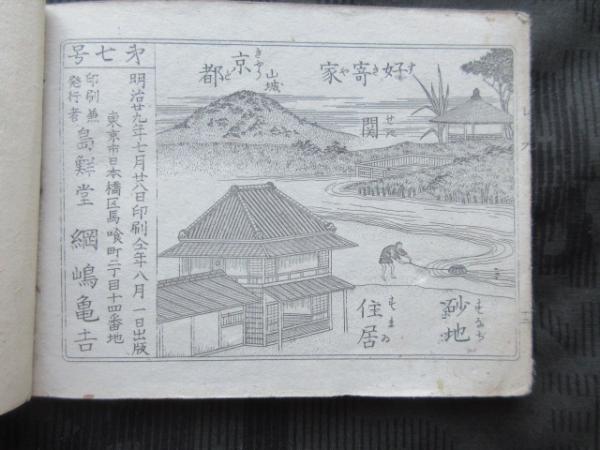 好寄家
すきや
山城
京都
きやうと
関
せき
砂地
すなぢ
住居
すまゐ
㐧七号
明治廿九年七月廿八日印刷仝年八月一日出版
東京市日本橋区馬喰町二丁目十四番地
印刷兼
発行者
島鮮堂 綱嶋亀吉